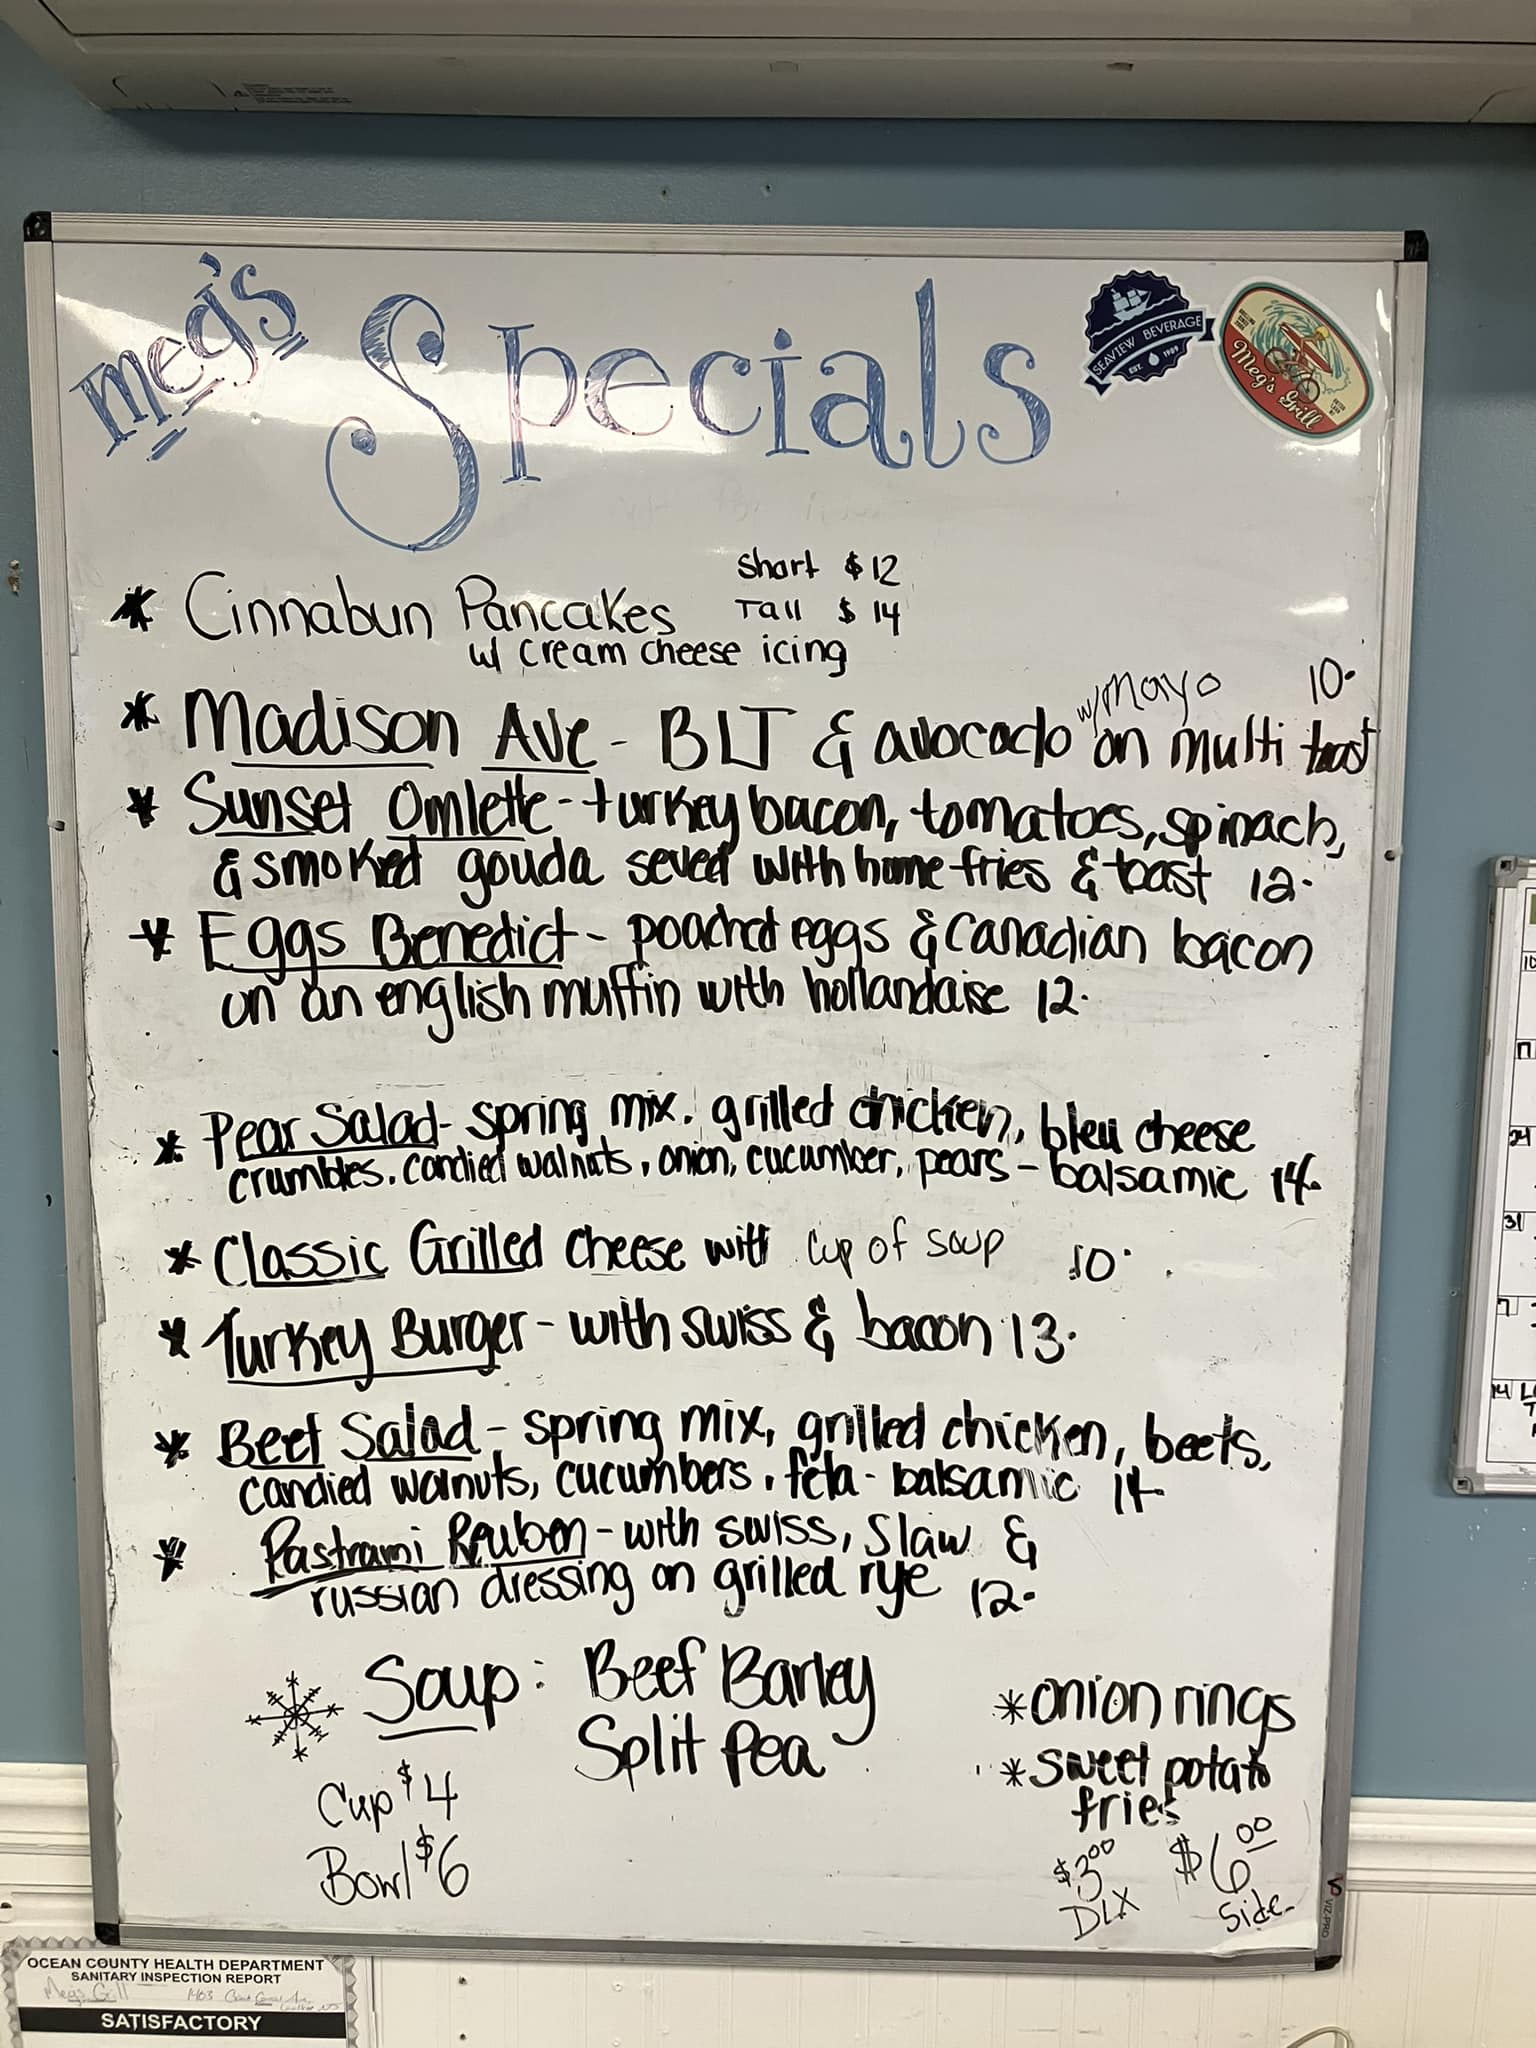 Meg's Specials
SEAVIEW BEVERAGE
EST. 1989
Meg's Grill
* Cinnabun Pancakes
Short $12
Tall $14
w/ cream cheese icing
w/ Mayo 10.
* Madison Ave - BLT & avocado on multi toast
* Sunset Omlette - turkey bacon, tomatoes, spinach,
& smoked gouda seved with home fries & toast 12.
* Eggs Benedict - poached eggs & Canadian bacon
on an english muffin with hollandaise 12.
* Pear Salad - spring mix, grilled chicken, bleu cheese
crumbles, candied walnuts, onion, cucumber, pears - balsamic 14.
* Classic Grilled Cheese with cup of soup 10.
* Turkey Burger - with swiss & bacon 13.
* Beet Salad - spring mix, grilled chicken, beets,
candied walnuts, cucumbers, feta - balsamic 14.
* Pastrami Reuben - with swiss, slaw &
russian dressing on grilled rye 12.
Soup: Beef Barley
Split Pea
Cup $4
Bowl $6
* onion rings
* sweet potato
fries
$3.00 DLX
$6.00 Side
VIZ-PRO
OCEAN COUNTY HEALTH DEPARTMENT
SANITARY INSPECTION REPORT
Meg's Grill 1403
SATISFACTORY
10
17
24
31
7
14